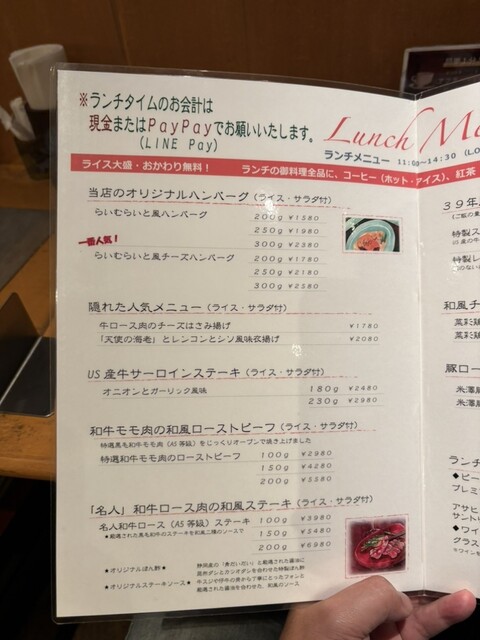 ※ランチタイムのお会計は
現金またはPayPayでお願いいたします。
(LINE Pay)
Lunch
ランチメニュー 11:00~14:30
ライス大盛・おかわり無料！ ランチの御料理全品に、コーヒー（ホット・アイス）、紅茶
当店のオリジナルハンバーグ（ライス・サラダ付）
らいむらいと風ハンバーグ 200g ¥1580
250g ¥1980
300g ¥2380
一番人気！
らいむらいと風チーズハンバーグ 200g ¥1780
250g ¥2180
300g ¥2580
隠れた人気メニュー（ライス・サラダ付）
牛ロース肉のチーズはさみ揚げ ¥1780
「天使の海老」とレンコンとシソ風味衣揚げ ¥2080
US産牛サーロインステーキ（ライス・サラダ付）
オニオンとガーリック風味 180g ¥2480
230g ¥2980
和牛モモ肉の和風ローストビーフ（ライス・サラダ付）
特選黒毛和牛モモ肉（A5等級）をじっくりオーブンで焼き上げました
特選和牛モモ肉のローストビーフ 100g ¥2980
150g ¥4280
200g ¥5580
「名人」和牛ロース肉の和風ステーキ（ライス・サラダ付）
名人和牛ロース（A5等級）ステーキ 100g ¥3980
★厳選された黒毛和牛のステーキを和風二種のソースで
150g ¥5480
200g ¥6980
★オリジナルぽん酢★
★オリジナルステーキソース★
39年
特製ス
特製レ
和風チ
豚ロー
米澤
米澤
ランチ
◆ビー
プレミ
アサヒ
サント
◆ワイ
グラス